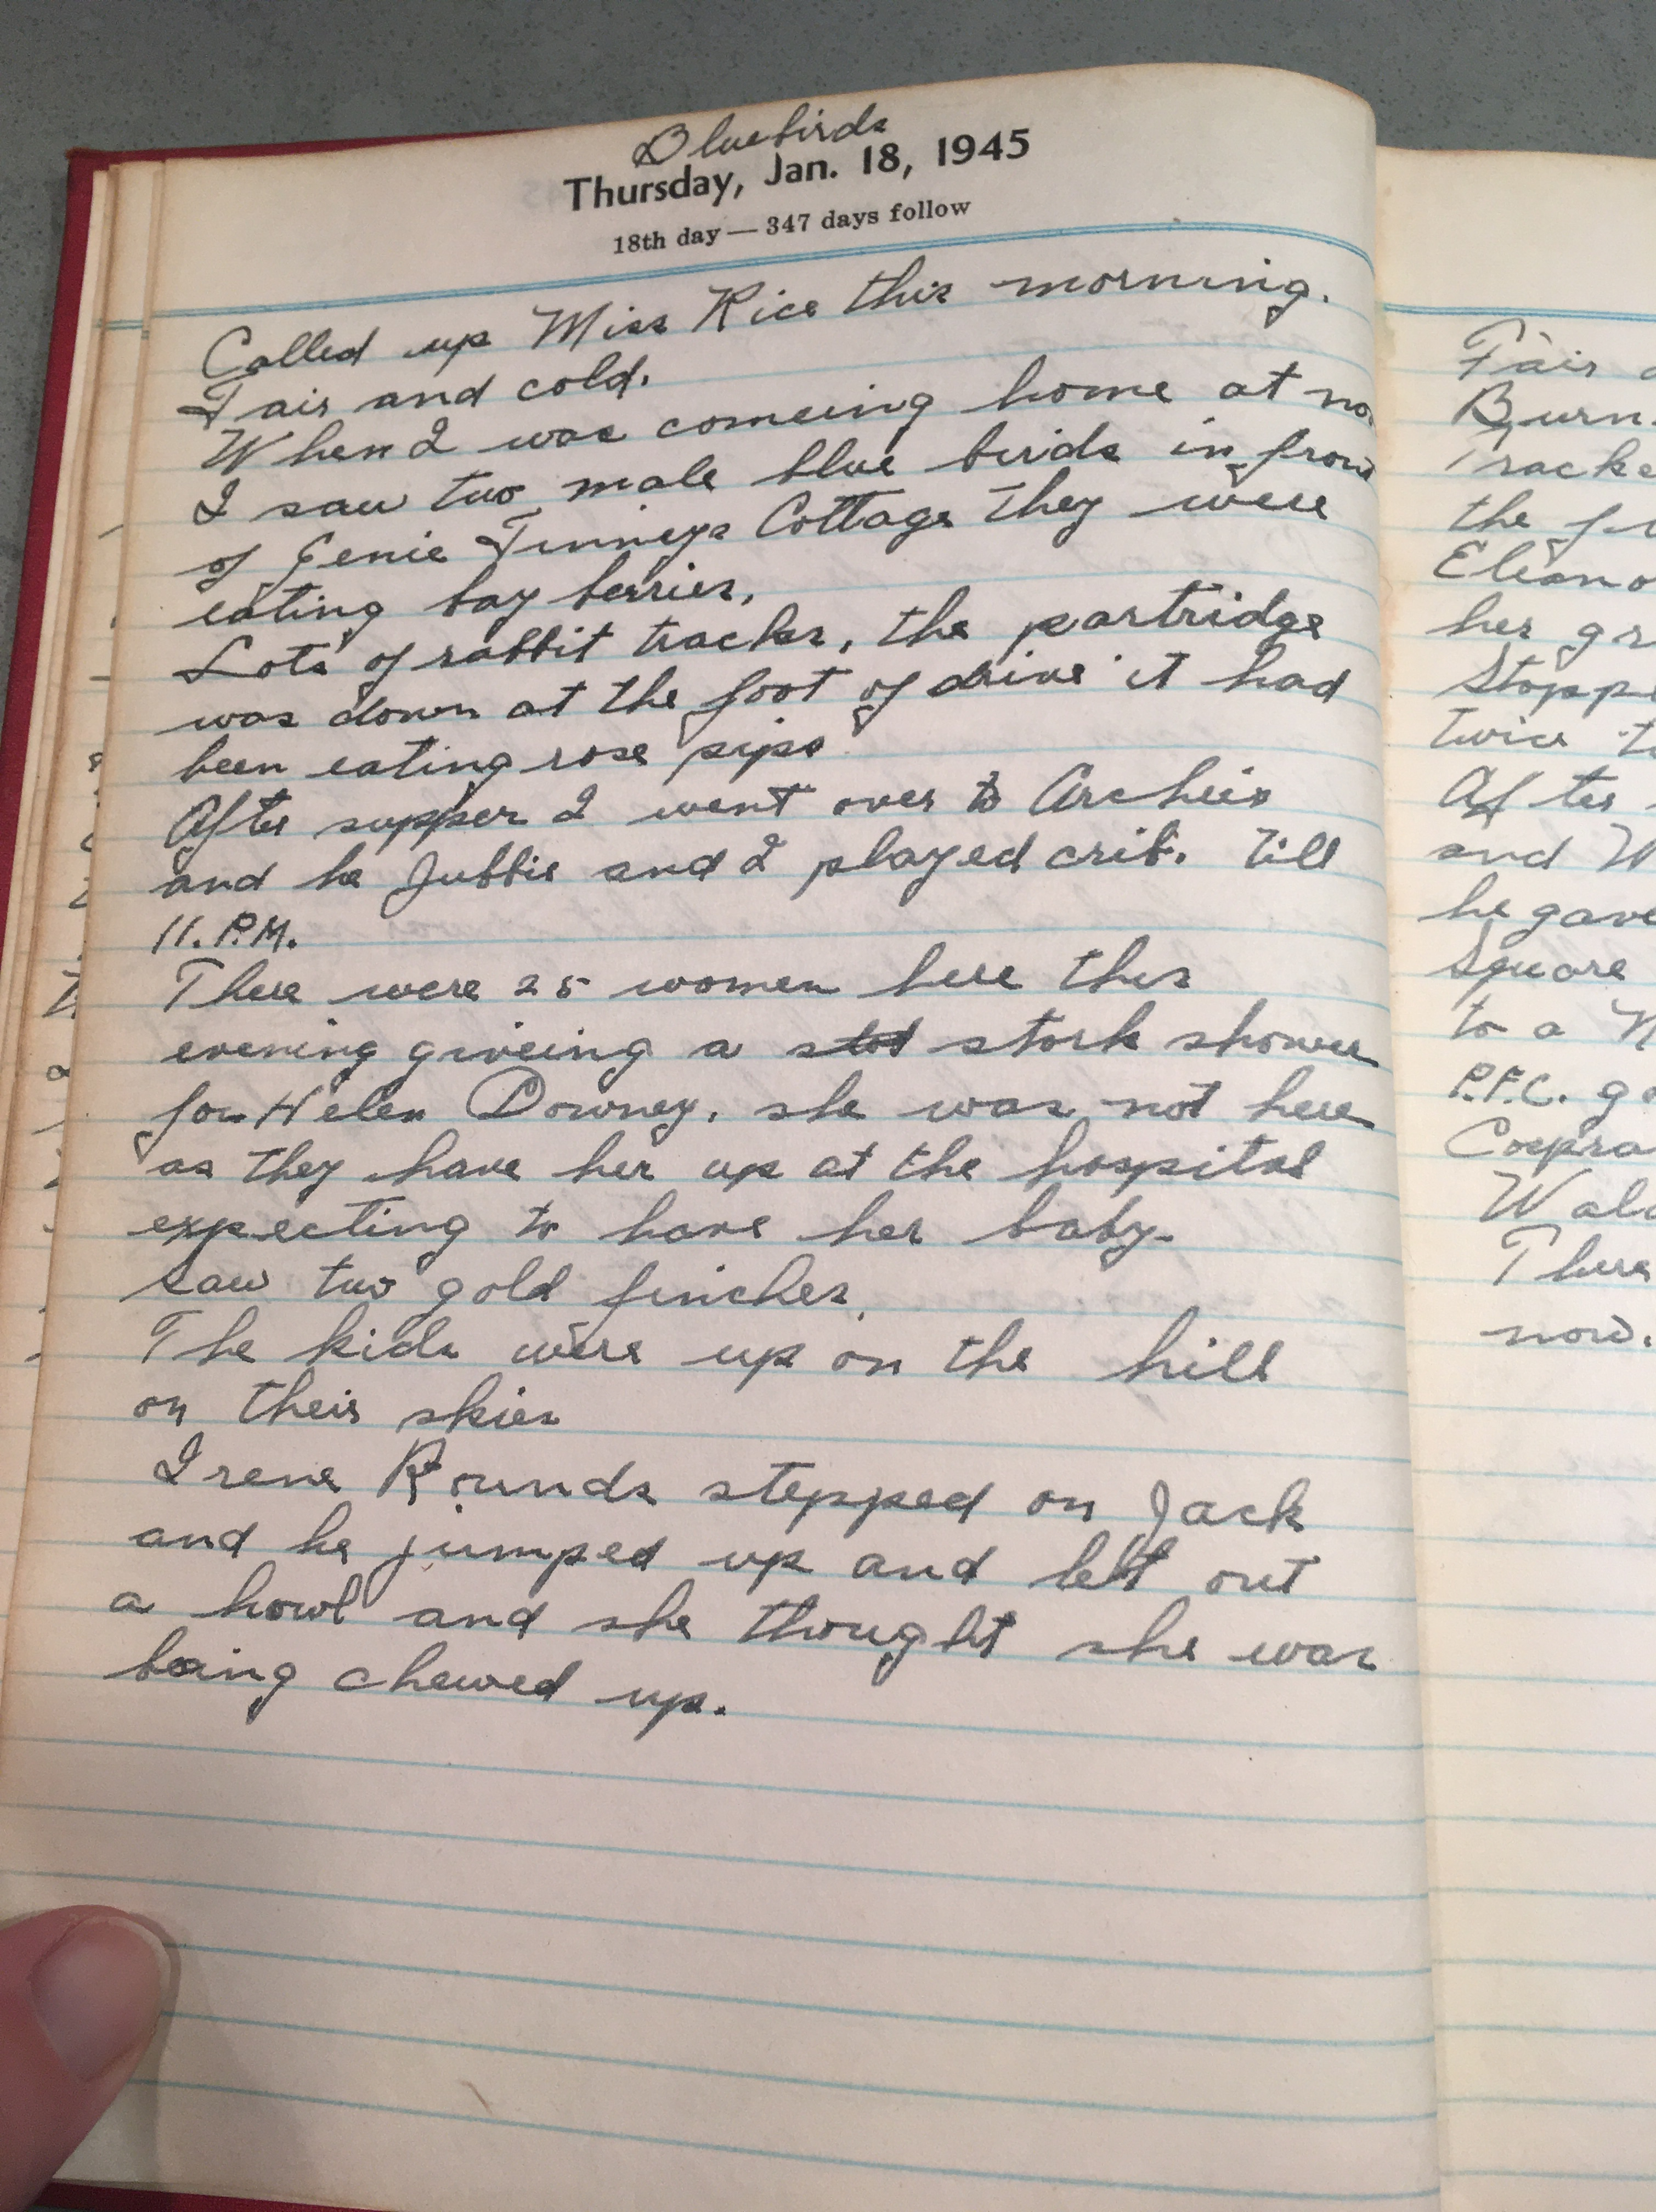 Bluebirds
Thursday, Jan. 18, 1945
18th day — 347 days follow
Called up Miss Rice this morning.
Fair and cold.
When I was comeing home at no
I saw two male blue birds in front
of Genie Tinneys Cottage they were
eating bay berries,
Lots of rabbit tracks, the partridge
was down at the foot of drive it had
been eating rose pips
After supper I went over to Archies
and he Jubbie and I played crib. till
11. P.M.
There were 25 women here this
evening giveing a stork shower
for Helen Downey, she was not here
as they have her up at the hospital
expecting to have her baby.
Saw two gold finches.
The kids were up on the hill
on their skies
Irene Rounds stepped on Jack
and he jumped up and let out
a howl and she thought she was
being chewed up.
Fair
Burn
Tracke
the
Eleano
her gr
Stoppe
twice
After
and W
he gave
Square
to a
P.F.C.
Corpra
Wal
There
now.